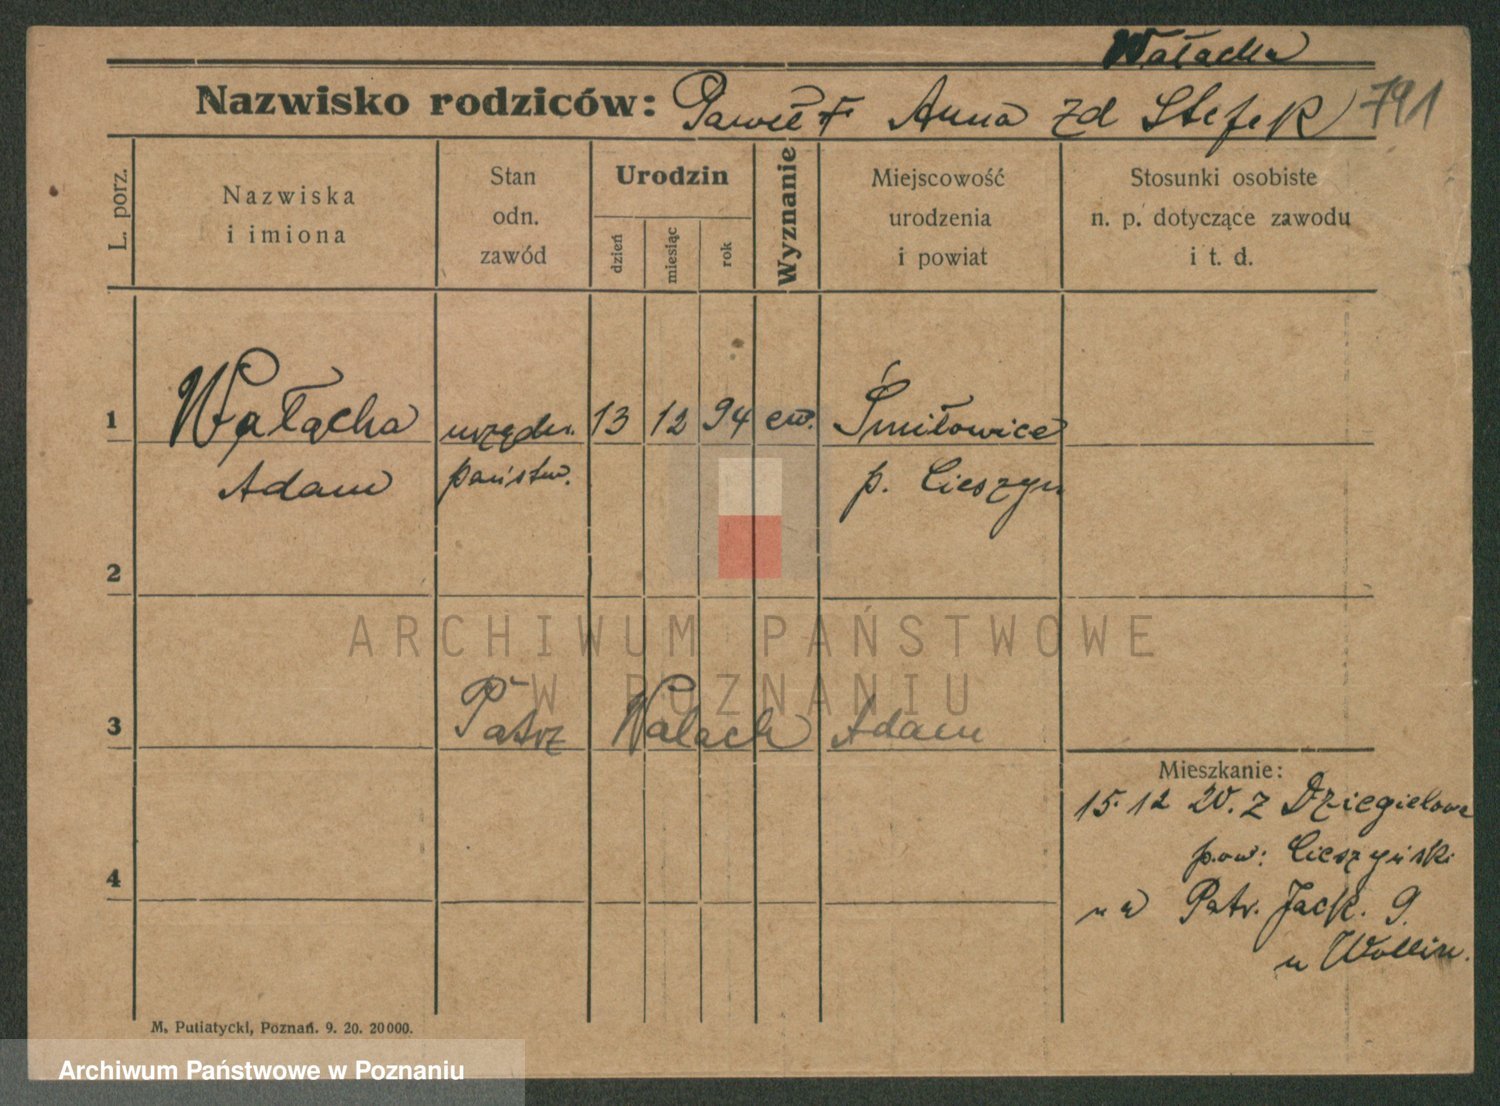 Wałacha
Nazwisko rodziców: Paweł F Anna zd Stefek 791
L. porz.
Nazwiska
i imiona
Stan
odn.
zawód
Urodzin
dzień
miesiąc
rok
Wyznanie
Miejscowość
urodzenia
i powiat
Stosunki osobiste
n. p. dotyczące zawodu
i t. d.
1 Wałacha urzędn. 13 12 94 ew. Śmiłowice
Adam państw. p. Cieszyn
2
ARCHIWUM PAŃSTWOWE
W POZNANIU
3 Patrz Walach Adam
Mieszkanie:
15.12 20. z Dzięgielowa
pow: Cieszyński
4
na Patr. Jack. 9.
u Wollin.
M. Putiatycki, Poznań. 9. 20. 20000.
Archiwum Państwowe w Poznaniu